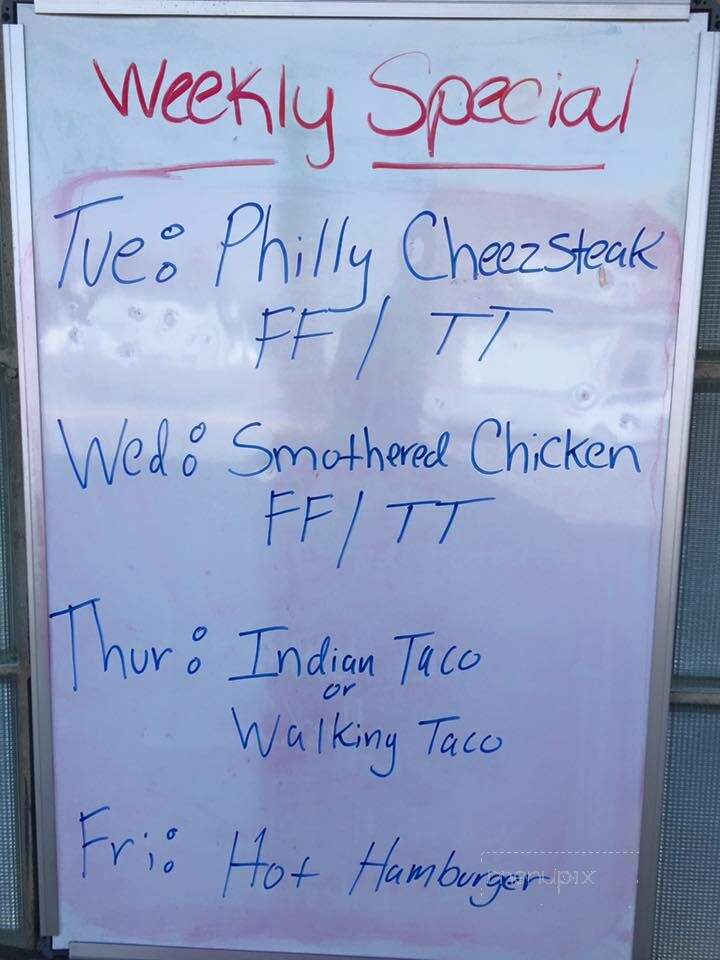 Weekly Special
Tue: Philly Cheezsteak
FF / TT
Wed: Smothered Chicken
FF / TT
Thur: Indian Taco
or
Walking Taco
Fri: Hot Hamburger
menupix